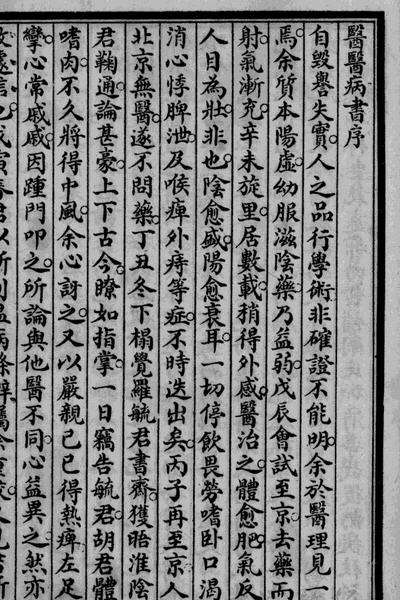 醫醫病書序
自毀譽失實人之品行學術非確證不能明余於醫理見一
焉余質本陽虛幼服滋陰藥乃益弱戊辰會試至京去藥而
射氣漸充辛未旋里居數載稍得外感醫治之體愈肥氣反
人目為壯非也陰愈盛陽愈衰耳一切停飲畏勞嗜卧口渴
消心悸脾泄及喉痺外痔等症不時迭出矣丙子再至京人
北京無醫遂不問藥丁丑冬下榻覺羅毓君書齋獲晤淮陰
君鞠通論甚豪上下古今瞭如指掌一日竊告毓君胡君體
嗜肉不久將得中風余心訝之又以嚴親己巳得熱痺左足
攣心常戚戚因踵門叩之所論與他醫不同心益異之然亦